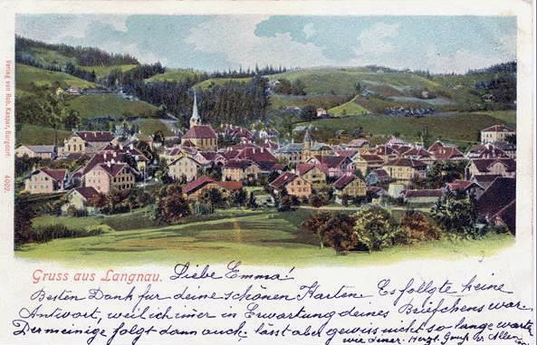 Verlag von Rob. Kaspar, Burgdorf.
4002.
Gruss aus Langnau. Liebe Emma!
Besten Dank für deine schönen Karten. Es folgte keine
Antwort, weil ich immer in Erwartung deines Briefchens war.
Der meinige folgt dann auch; lässt aber gewiss nicht so lange warten
wie deiner. Herzl. Allen